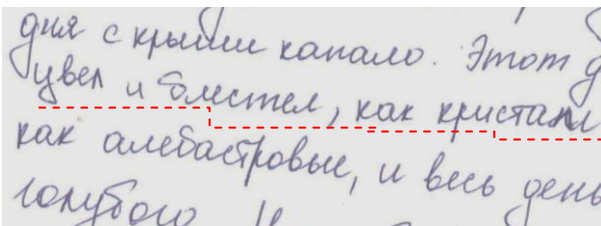 дня с крыши капало. Этот д
цвел и блестел, как кристалл
как алебастровые, и весь день
голубого